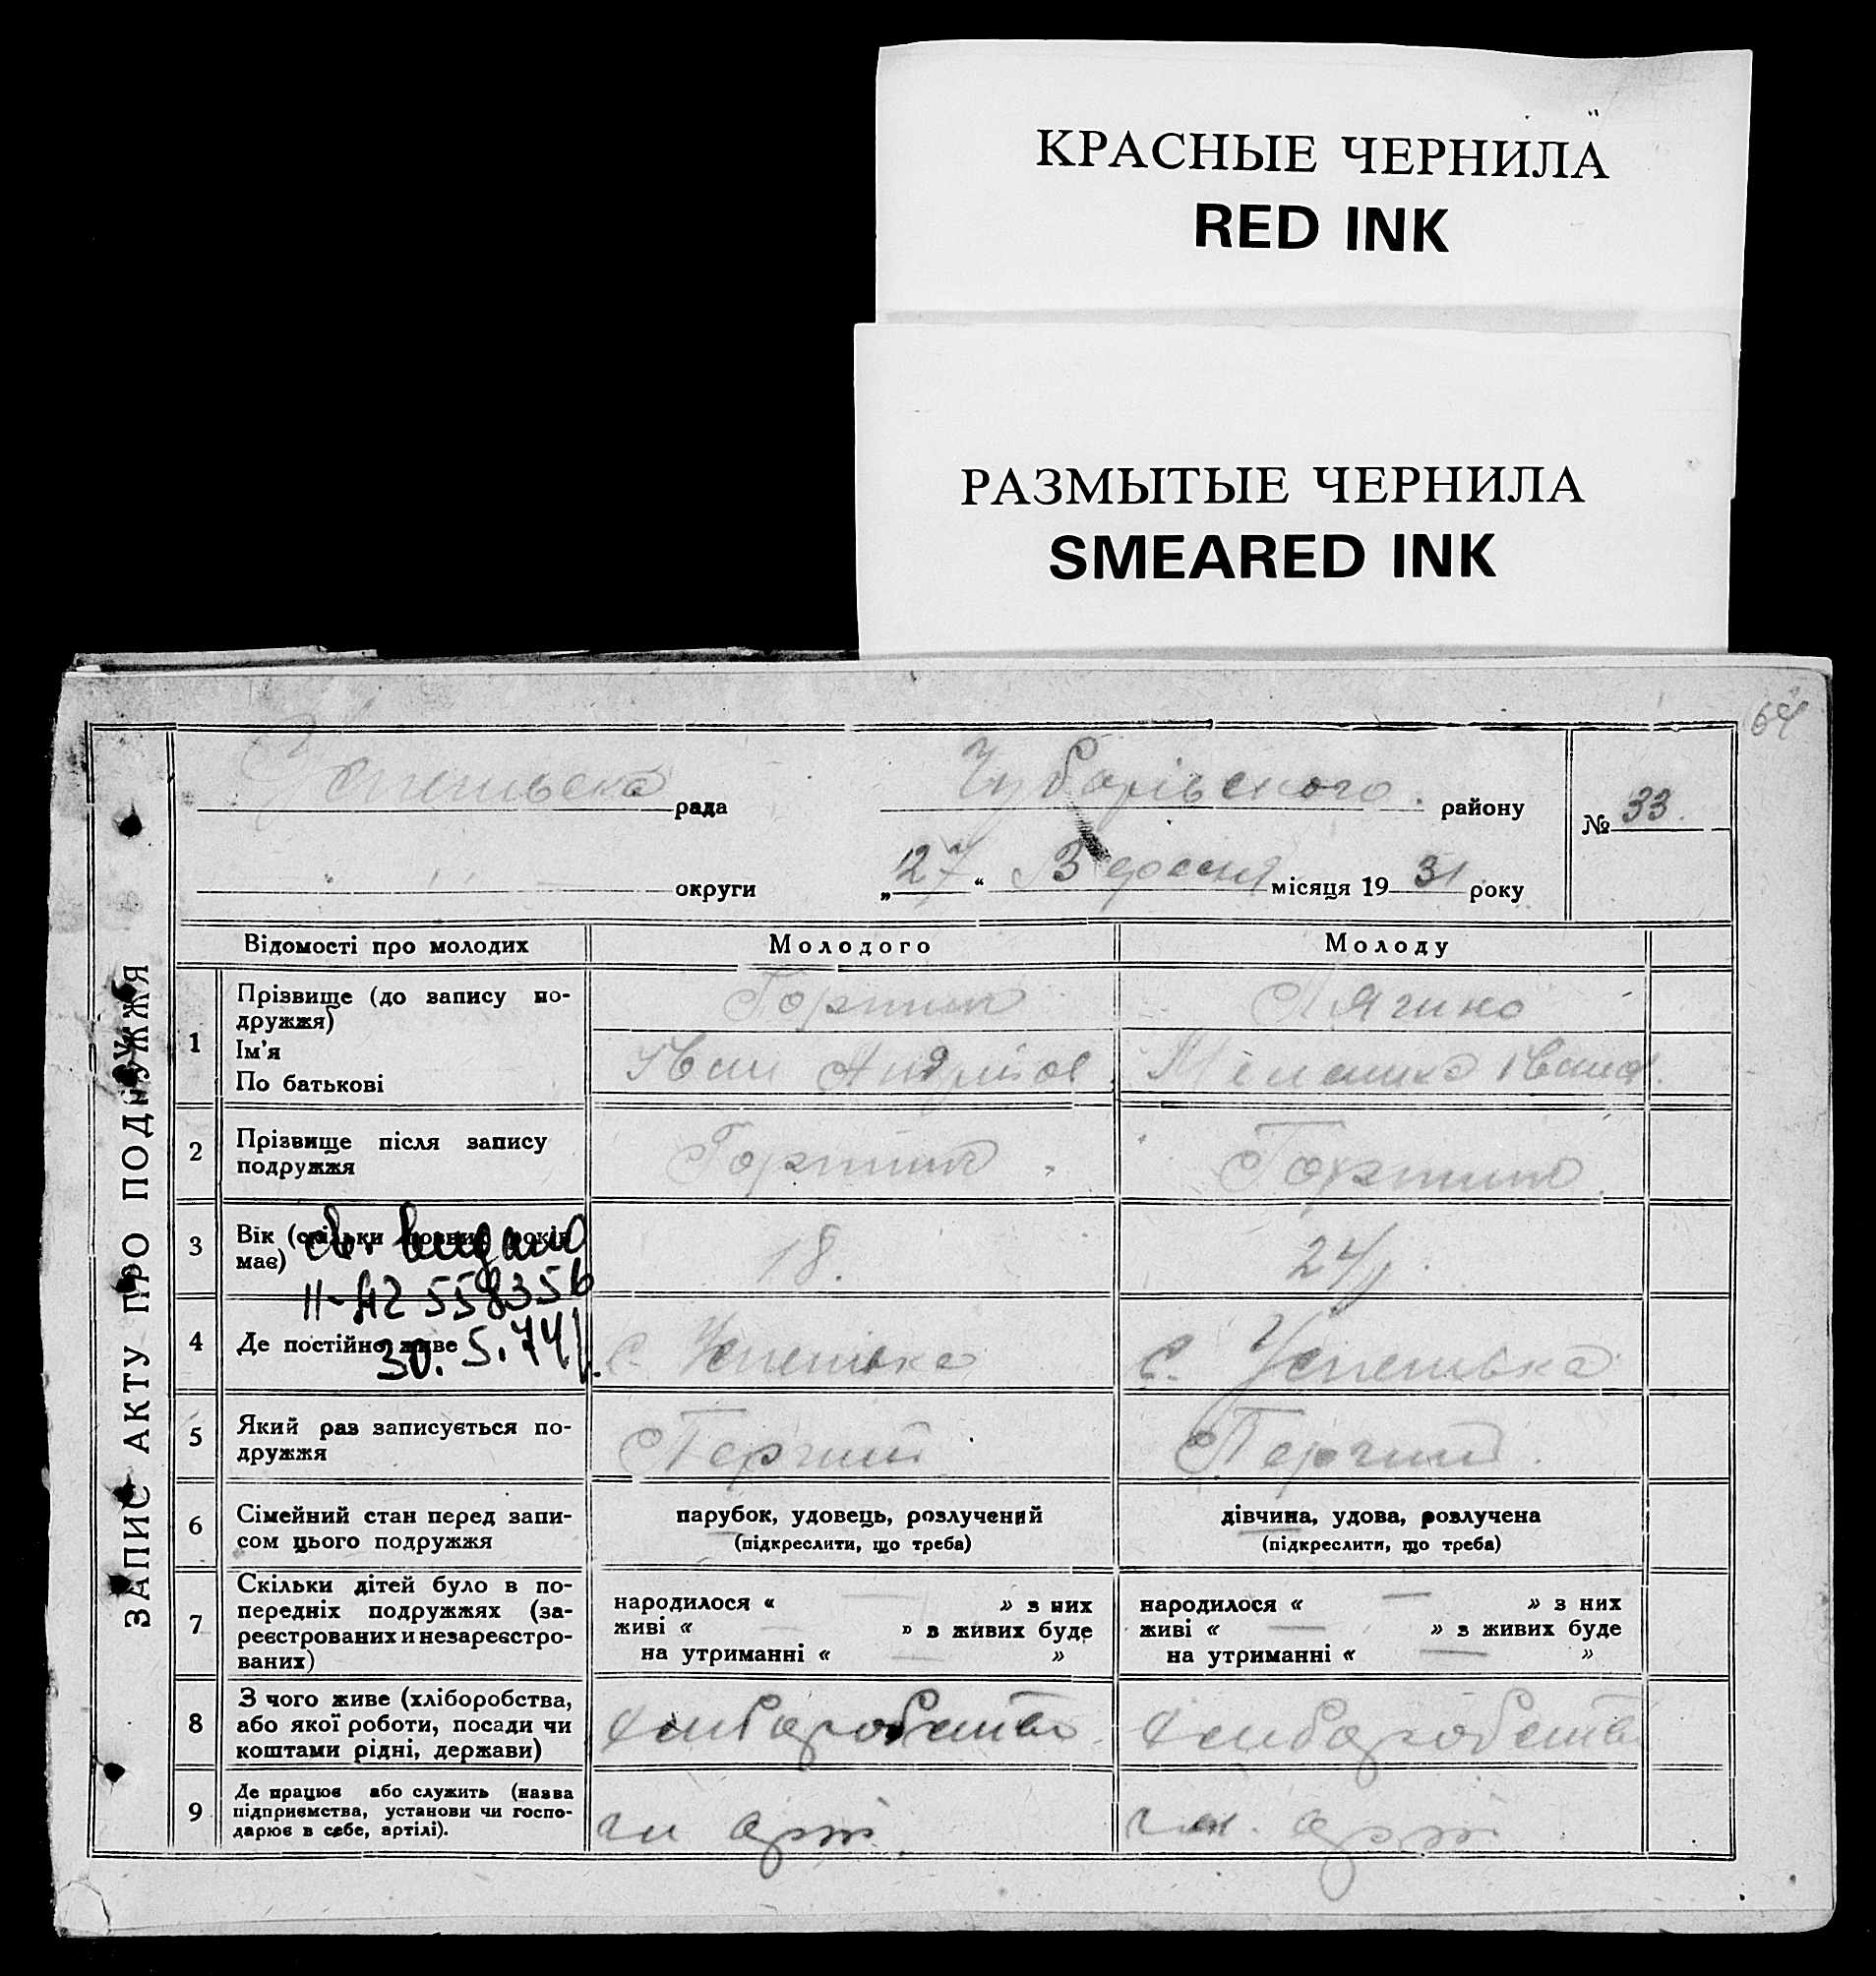 КРАСНЫЕ ЧЕРНИЛА
RED INK
РАЗМЫТЫЕ ЧЕРНИЛА
SMEARED INK
64
ЗАПИС АКТУ ПРО ПОДРУЖЖЯ
Успенівська рада Чубарівського району № 33.
округи „27“ Вересня місяця 1931 року
Відомості про молодих Молодого Молоду
1 Прізвище (до запису по-
дружжя)
Ім'я
По батькові
Іван Андрійов. Меланка Іванов.
2 Прізвище після запису
подружжя
3 Вік (скільки повних років
має) 18. 24
св. видано
II-АП 558356
30.5.74
4 Де постійно живе с. Успенівка с. Успенівка
5 Який раз записується по-
дружжя Перший Перший.
6 Сімейний стан перед запи-
сом цього подружжя
парубок, удовець, розлучений дівчина, удова, розлучена
(підкреслити, що треба) (підкреслити, що треба)
7 Скільки дітей було в по-
передніх подружжях (за-
реєстрованих и незареєстро-
ваних)
народилося « — » з них народилося « — » з них
живі « — » з живих буде живі « — » з живих буде
на утриманні « — » на утриманні « — »
8 З чого живе (хліборобства,
або якої роботи, посади чи
коштами рідні, держави)
хліборобства хліборобства
9 Де працює або служить (назва
підприємства, установи чи госпо-
дарює в себе, артілі).
чл. арт. чл. арт.